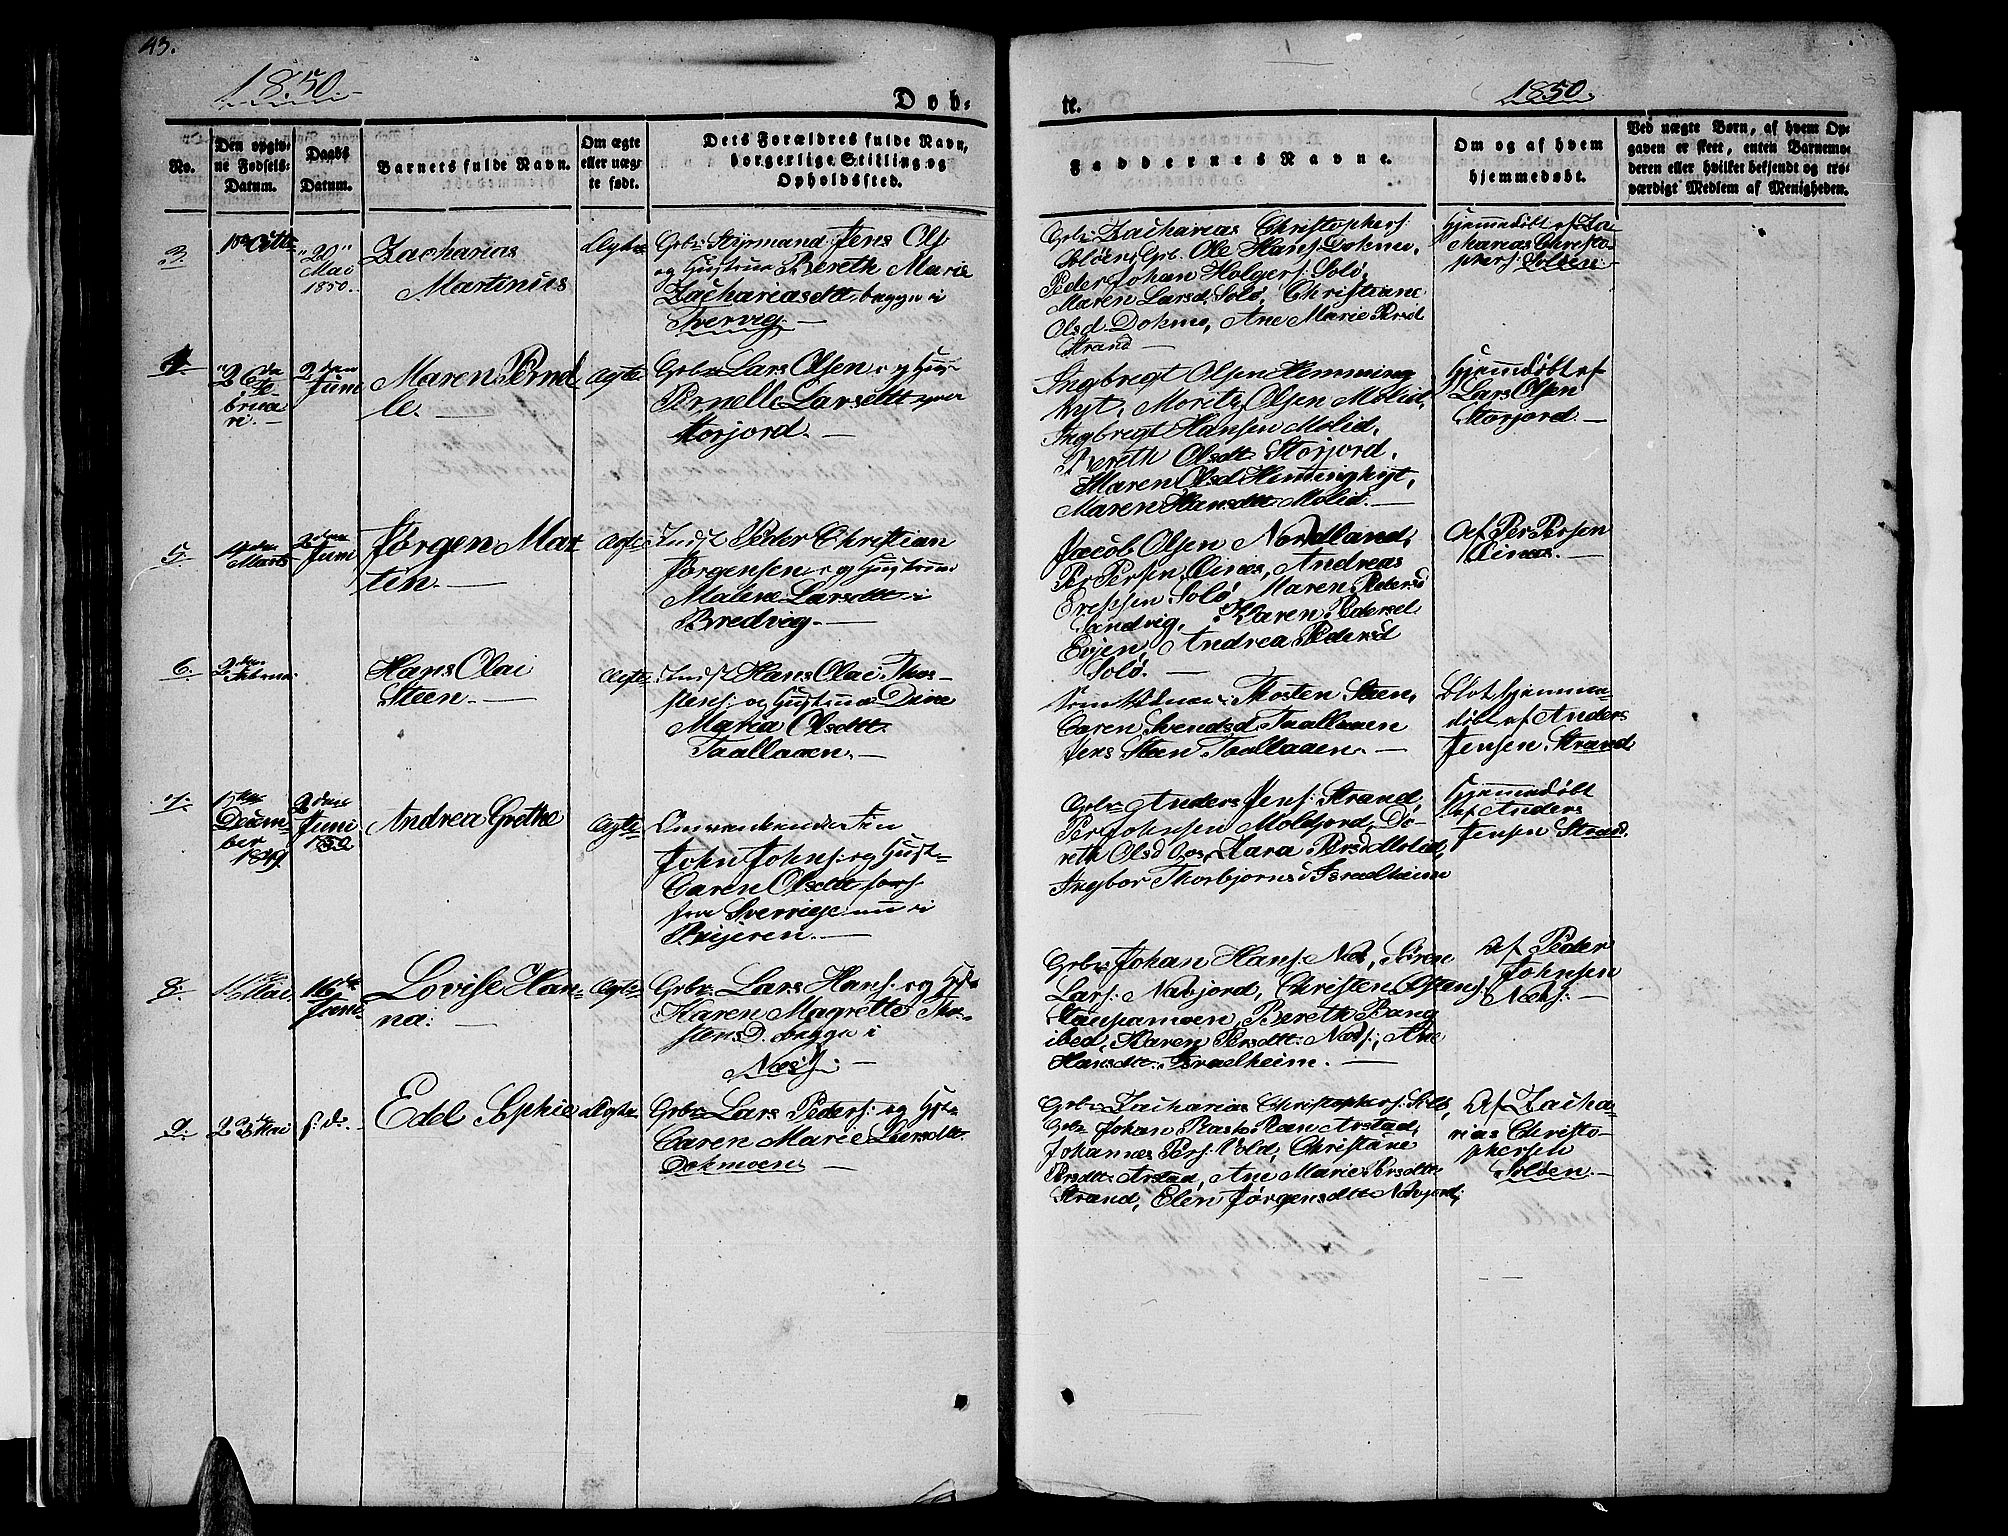 43.
1850
Døb-
te.
1850.
No.
Den opgiv-
ne Fødsels-
Datum.
Daabs
Datum.
Barnets fulde Navn.
Om ægte
eller uægt
te født.
Dets Forældres fulde Navn,
borgerlige Stilling og
Opholdssted.
Faddernes Navne.
Om og af hvem
hjemmedøbt.
Ved uægte Børn, af hvem Op-
gaven er skeet, enten Barnemo-
deren eller hvilket bekjendt og tro-
værdigt Medlem af Menigheden.
3.
"20"
Mai
1850.
Zacharias
Martinius
Ægte
Gbr: Styrmand Jens Ols
og Hustrue Bereth Marie
Zachariasdtt. begge i
Svervig.
Gbr: Zacharias Christophers:
Soløen, Gb. Ole Hans: Dokmo,
Peder Johan Holgers: Solø,
Maren Larsd. Solø, Christiane
Olsd. Dokmo, Ane Marie Persd
Strand
Hjemmedøbt af Za
charias Christo
phers: Soløen
4.
26de
Fe
brua
ri.
2den
Juni
Maren Pernel
le.
Ægte
Gbr: Lars Olsen og Hus
Pernelle Larsdtt
Storjord.
Ingbregt Olsen Hemming
hyt, Moritz Olsen Molid,
Ingbregt Hansen Molid,
Bereth Olsdt. Storjord,
Maren Olsd Hemminghyt,
Maren Hansdtt. Molid.
Hjemmedøbt af
Lars Olsen
Storjord.
5.
Marts
2den
Juni
Jørgen Mar
tin.
Ægte
Inds: Peder Christian
Jørgensen og Hustrue
Malene Larsdtt. i
Bredvig.
Jacob Olsen Nordland,
Per Persen Einæs, Andreas
Solø, Maren Pedersd
Sandvig, Karen Pedersd.
Evjen, Andrea Pedersd
Solø.
Af Per Persen
Einæs.
6.
2den
Februar
Hans Olai
Steen.
Ægte
Inds: Hans Olai Thos-
stens: og Hustrue Dine
Maria Olsdtt.
Taallaaen.
Som Vidner: Thosten Steen,
Caren Svendsd. Taallaaen
Jens Steen Taallaaen.
Blot hjemme-
døbt af Anders
Jensen Strand
7.
Decem-
ber
1849.
2den
Juni
1850
Andrea Grethe
Ægte
Omvankende Fin
John Johns: og Hust-
Caren Olsdtt.
fra Sverrige nu i
Beijeren.
Gbr: Anders Jens: Strand,
Per Johnsen Moldjord, Do-
reth Olsd Oos, Lara Persd Molid,
Ingbor Thorbjørnsd Israelheim
Hjemmedøbt
af Anders
Jensen Strand.
8.
Mai
16de
Juni
Lovise Han-
na.
Ægte
Gbr: Lars Hans: og Hst-
Karen Magrette Thor-
stensD. begge i
Næss.
Gbr: Johan Hans: Næs, Søren
Lars: Næbjord, Christen
Bereth Bang
ibed, Karen Persdtt: Næss, Ane
Hansdtt. Israelheim.
Af Peder
Johnsen
Næss.
9.
23 Mai
s: d.
Edel Sophie
Ægte
Gbr: Lars Peders: og Hst-
Caren Marie Larsdtt.
Dokmoen
Gbr: Zacharias Christophers: Solø,
Gbr. Johan Arstad,
Johannes Pers: Vold, Christiane
Persdtt. Arstad, Ane Marie Persdtt.
Strand, Elen Jørgensdtt. Næbjord;
Af Zacha-
rias Christo-
phersen
Soløen.